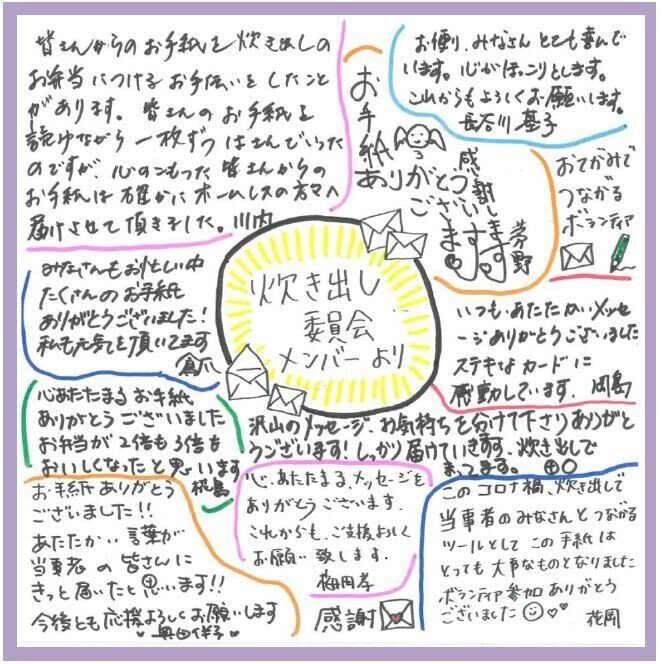 皆さんからのお手紙を炊き出しの
お弁当につけるお手伝いをしたこと
があります。皆さんのお手紙を
読みながら一枚ずつはさんでいった
のですが、心のこもった皆さんからの
お手紙は確かにホームレスの方々へ
届けさせて頂きました。川内
お手紙
ありがとう
ございます
感謝します
茅野
お便り、みなさんとても喜んで
います。心がほっこりとします。
これからもよろしくお願いします。
長谷川基子
おてがみで
つながる
ボランティア
炊き出し
委員会
メンバーより
みなさんもお忙しい中
たくさんのお手紙
ありがとうございました!
私も元気を頂いてます
いつも、あたたかいメッセ
ージありがとうございました
ステキなカードに
感動しています。田島
心あたたまるお手紙
ありがとうございました
お弁当が2倍も3倍も
おいしくなったと思います
椛島
沢山のメッセージ、お気持ちを分けて下さりありがと
うございます!しっかり届けていきます。炊き出しで
まってます。
お手紙ありがとう
ございました!!
あたたかい言葉が
当事者の皆さんに
きっと届いたと思います!!
今後とも応援よろしくお願いします
奥田伴子
心、あたたまるメッセージを
ありがとうございます。
これからも、ご支援よろしく
お願い致します。
梅田孝
感謝
このコロナ禍、炊き出しで
当事者のみなさんとつながる
ツールとしてこの手紙は
とっても大事なものとなりました
ボランティア参加ありがとう
ございました
花岡